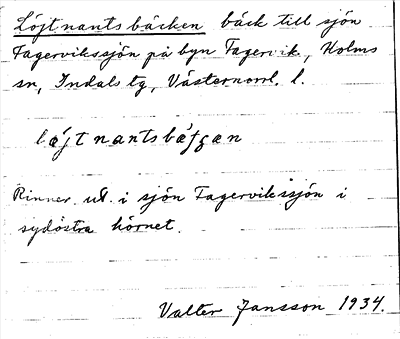 Löjtnantsbäcken bäck till sjön
Fagervikssjön på byn Fagervik, Holms
sn, Indals tg, Västernorrl. l.
læ̀jtnantsbæ̀fçen
Rinner ut i sjön Fagervikssjön i
sydöstra hörnet.
Valter Jansson 1934.